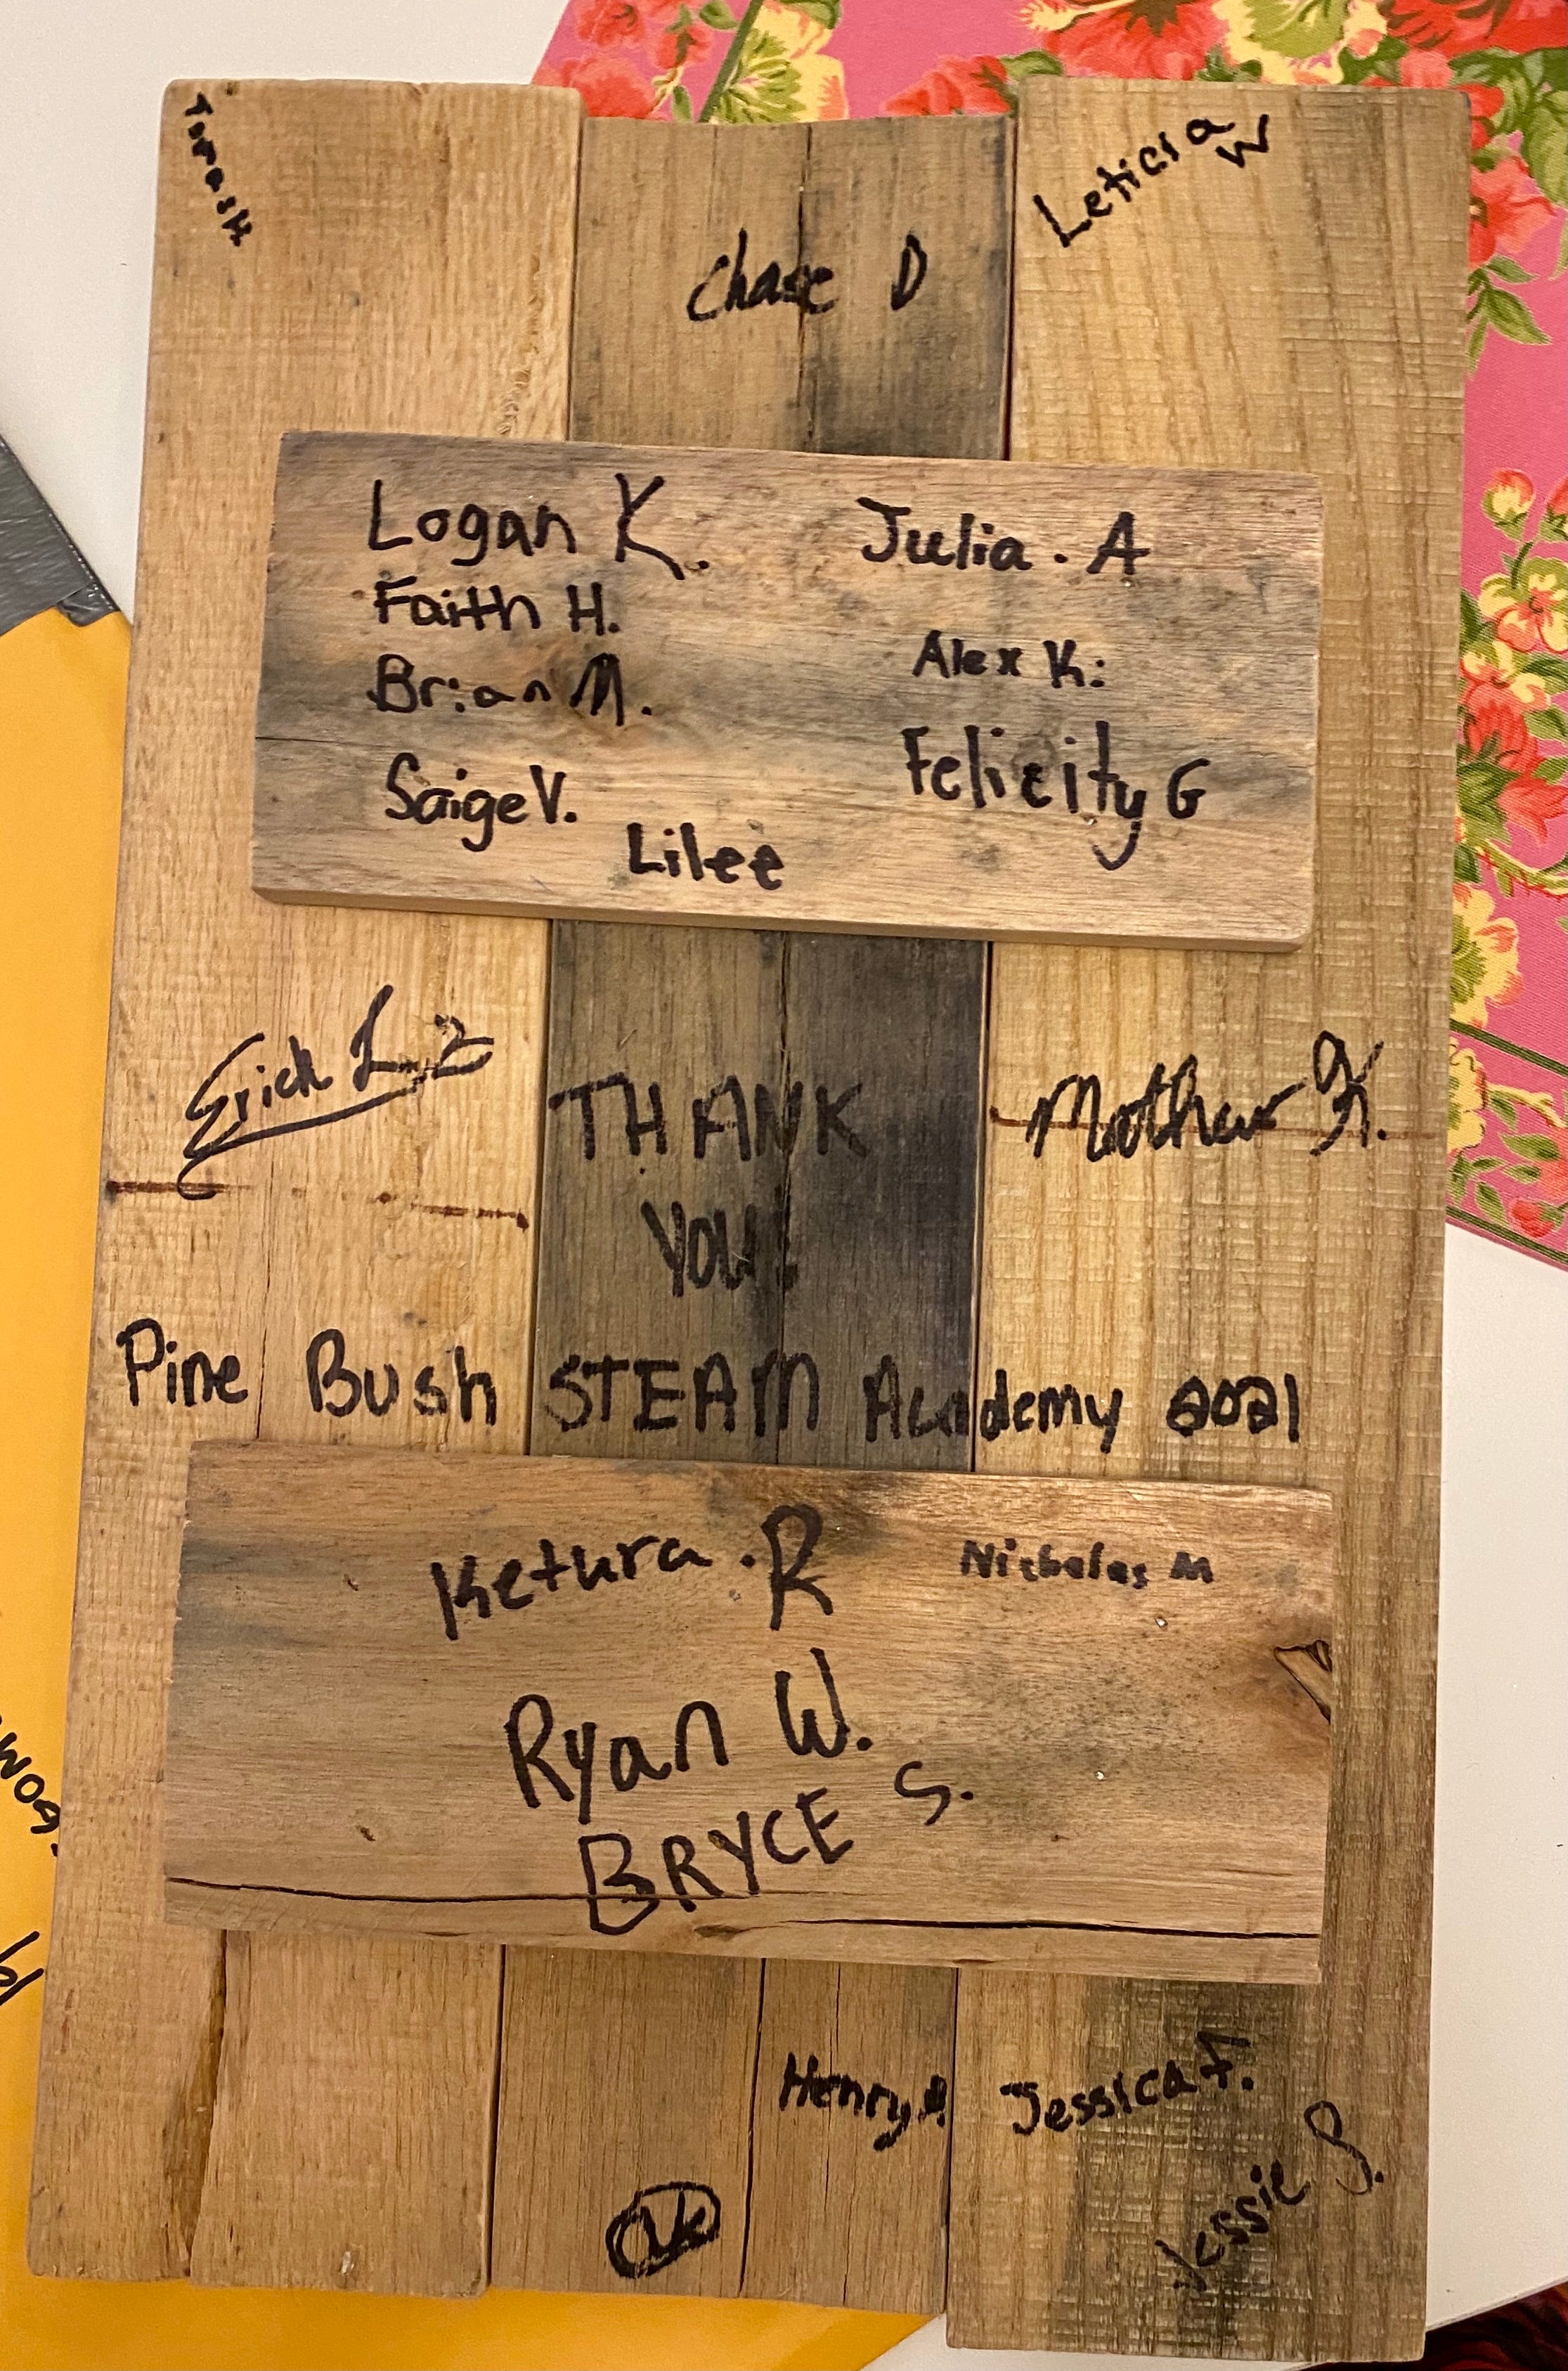 Leticia W
Chase D
Logan K.
Julia. A
Faith H.
Alex K.
Brian M.
Felicity G
Saige V.
Lilee
Erick
THANK
YOU!
Matthew K.
Pine Bush STEAM Academy 2021
Ketura. R
Nicholas M
Ryan W.
BRYCE S.
Henry
Jessica F.
Jessie S.